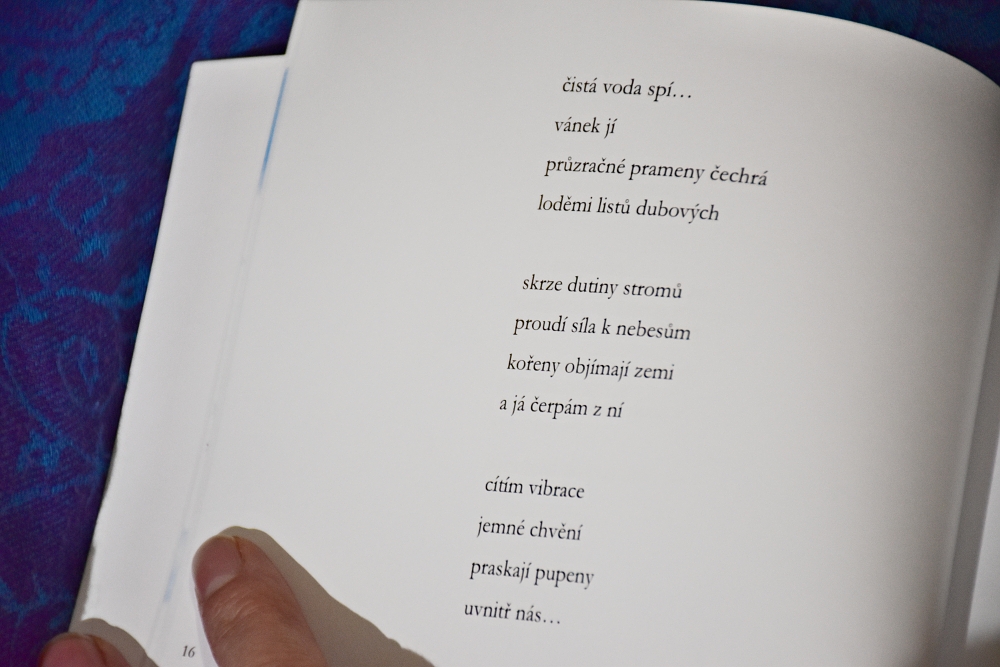 čistá voda spí…
vánek jí
průzračné prameny čechrá
loděmi listů dubových
skrze dutiny stromů
proudí síla k nebesům
kořeny objímají zemi
a já čerpám z ní
cítím vibrace
jemné chvění
praskají pupeny
uvnitř nás…
16